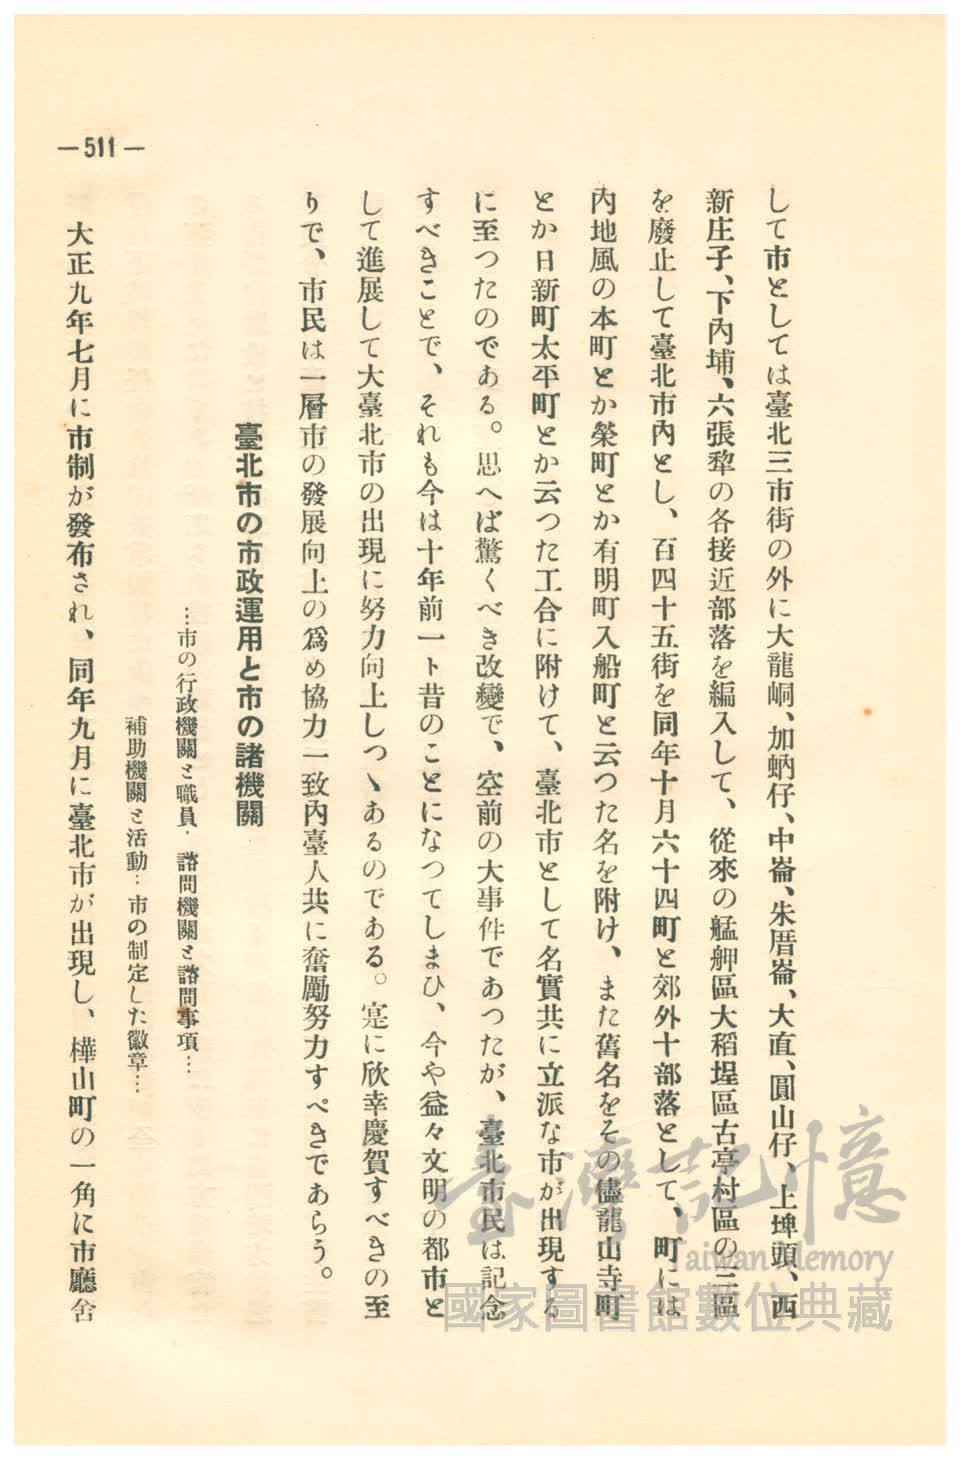 —511—
して市としては臺北三市街の外に大龍峒、加蚋仔、中崙、朱厝崙、大直、圓山仔、上埤頭、西
新庄子、下內埔、六張犂の各接近部落を編入して、從來の艋舺區大稻埕區古亭村區の三區
を廢止して臺北市內とし、百四十五街を同年十月六十四町と郊外十部落として、町には
內地風の本町とか榮町とか有明町入船町と云つた名を附け、また舊名をその儘龍山寺町
とか日新町太平町とか云つた工合に附けて、臺北市として名實共に立派な市が出現する
に至つたのである。思へば驚くべき改變で、空前の大事件であつたが、臺北市民は記念
すべきことで、それも今は十年前一ト昔のことになつてしまひ、今や益々文明の都市と
して進展して大臺北市の出現に努力向上しつゝあるのである。寔に欣幸慶賀すべきの至
りで、市民は一層市の發展向上の爲め協力一致內臺人共に奮勵努力すべきであらう。
臺北市の市政運用と市の諸機關
…市の行政機關と職員・諮問機關と諮問事項…
補助機關と活動…市の制定した徽章…
大正九年七月に市制が發布され、同年九月に臺北市が出現し、樺山町の一角に市廳舍
臺灣記憶
Taiwan Memory
國家圖書館數位典藏